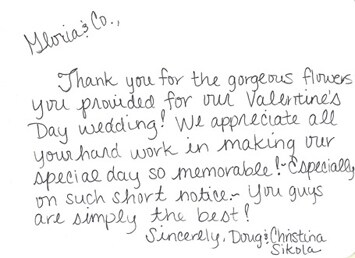 Gloria & Co.,
Thank you for the gorgeous flowers
you provided for our Valentine's
Day wedding! We appreciate all
your hard work in making our
special day so memorable! - Especially
on such short notice. - You guys
are simply the best!
Sincerely, Doug & Christina
Sikola